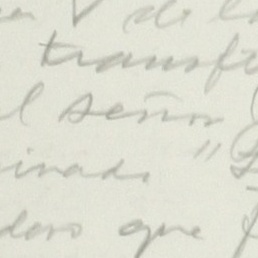 de l
transf
l señor
inado "
ders que